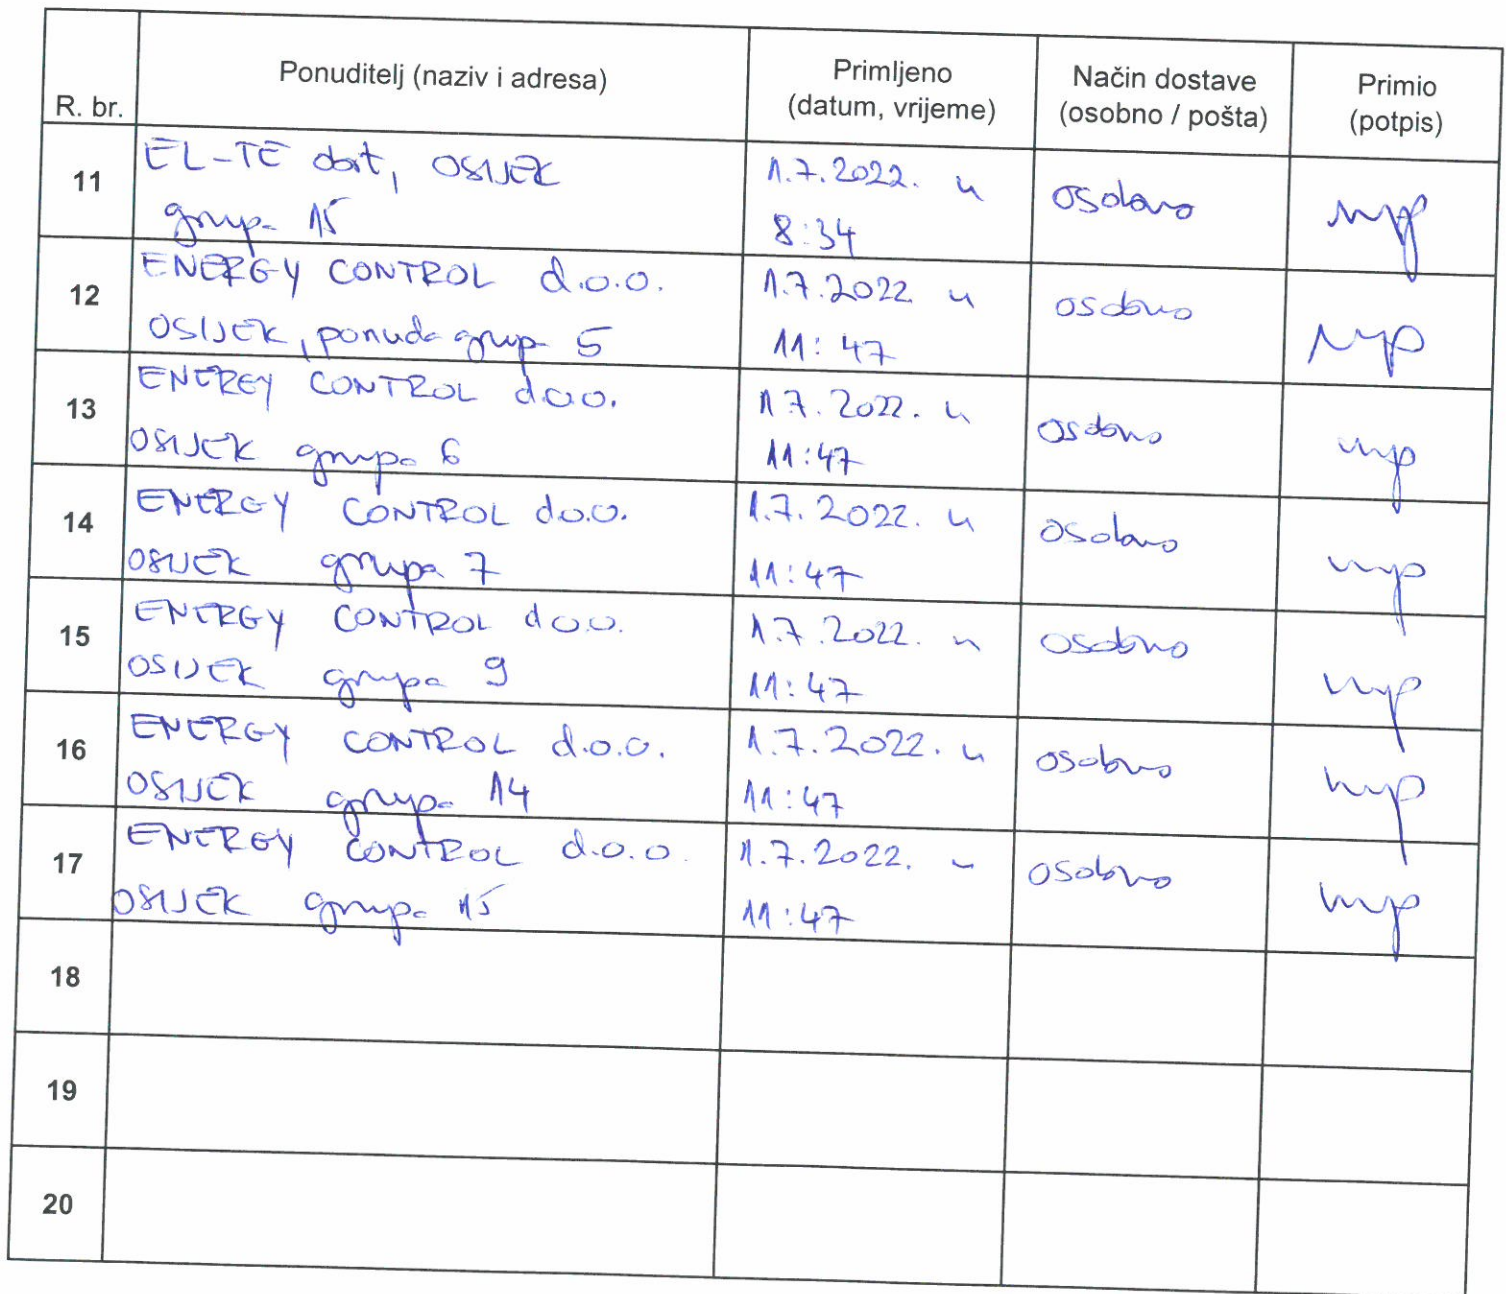 R. br.
Ponuditelj (naziv i adresa)
Primljeno
(datum, vrijeme)
Način dostave
(osobno / pošta)
Primio
(potpis)
11
EL-TE obrt, OSIJEK
grupa 15
1.7.2022. u
8:34
osobno
12
ENERGY CONTROL d.o.o.
OSIJEK, ponuda grupa 5
1.7.2022 u
11:47
osobno
13
ENERGY CONTROL d.o.o.
OSIJEK grupa 6
1.7.2022. u
11:47
osobno
14
ENERGY CONTROL d.o.o.
OSIJEK grupa 7
1.7.2022. u
11:47
osobno
15
ENERGY CONTROL d.o.o.
OSIJEK grupa 9
1.7.2022. u
11:47
osobno
16
ENERGY CONTROL d.o.o.
OSIJEK grupa 14
1.7.2022. u
11:47
osobno
17
ENERGY CONTROL d.o.o.
OSIJEK grupa 15
1.7.2022. u
11:47
osobno
18
19
20